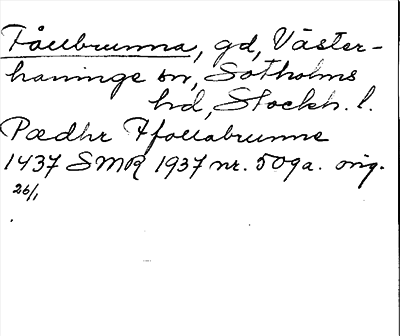 Fåuebrunna, gd, Väster-
haninge sn, Sotholms
hd, Stockh. l.
Pædhr Ffollabrunne
1437 SMR 1937 nr. 509a. orig.
26/1